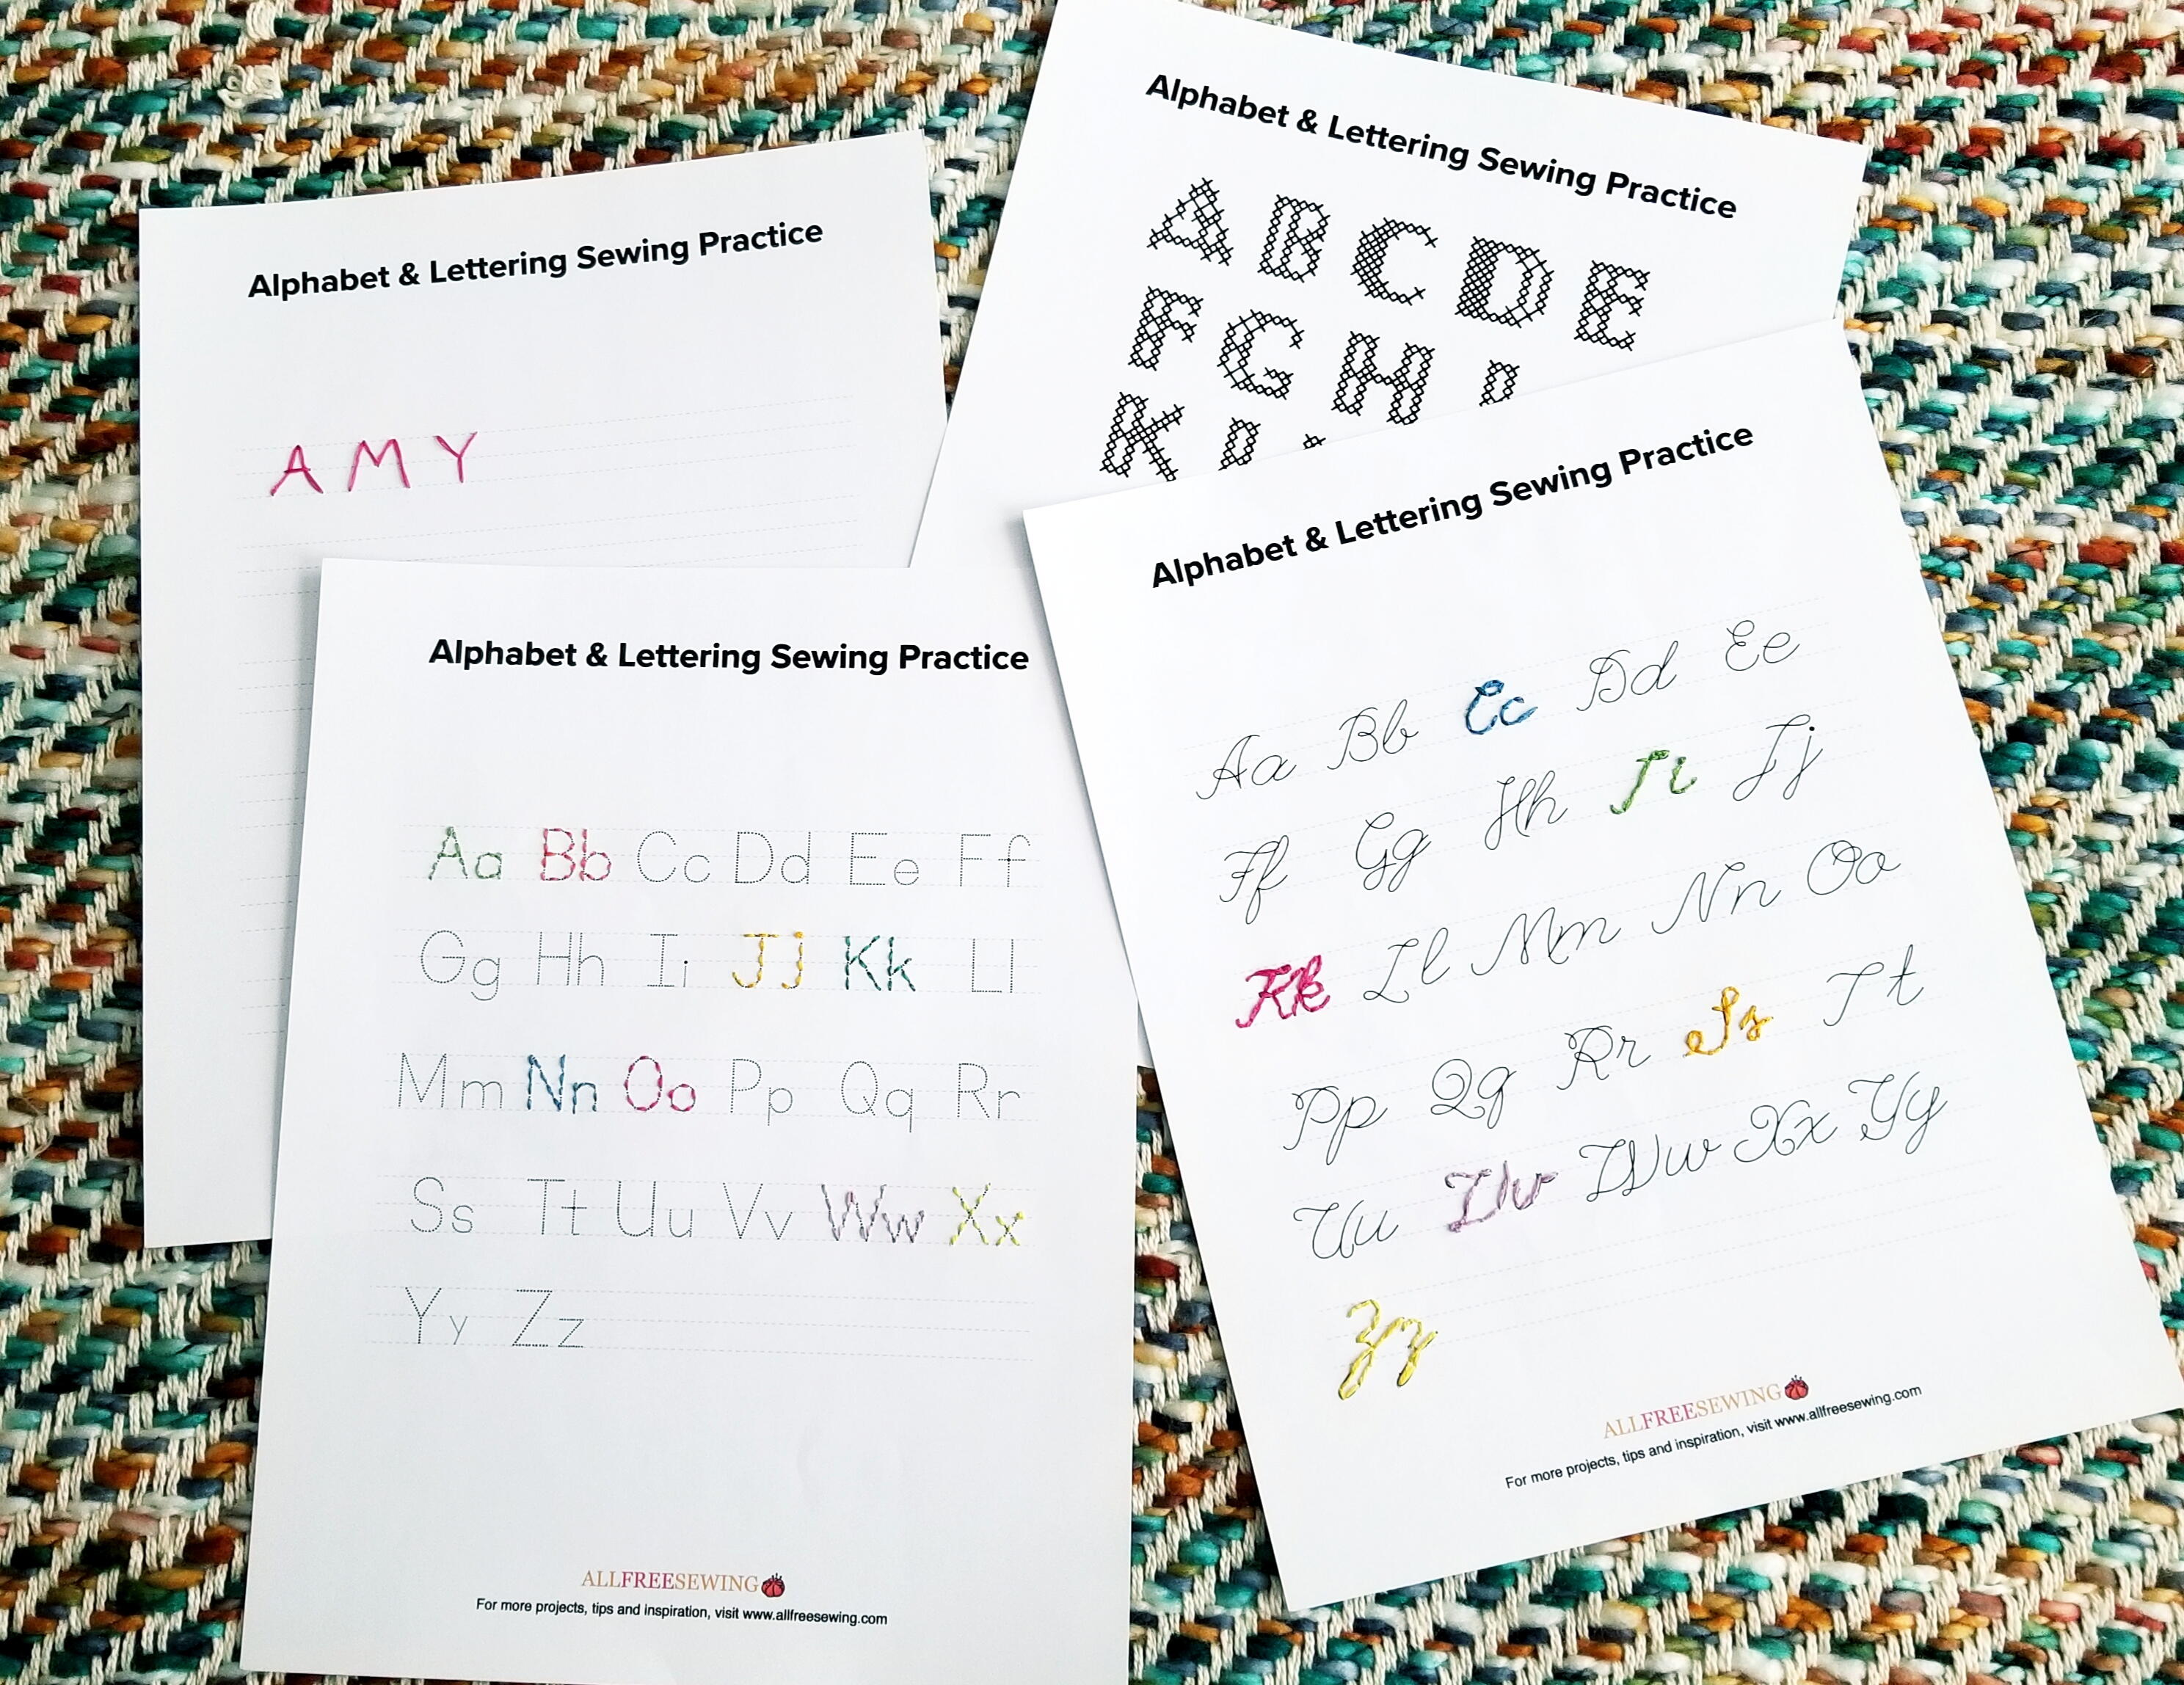 Alphabet & Lettering Sewing Practice
A M Y
Alphabet & Lettering Sewing Practice
A B C D E
F G H
K
Alphabet & Lettering Sewing Practice
Aa Bb Cc Dd Ee Ff
Gg Hh Ii Jj Kk Ll
Mm Nn Oo Pp Qq Rr
Ss Tt Uu Vv Ww Xx
Yy Zz
ALLFREESEWING
For more projects, tips and inspiration, visit www.allfreesewing.com
Alphabet & Lettering Sewing Practice
Aa Bb Cc Dd Ee
Ff Gg Hh Ii Jj
Kk Ll Mm Nn Oo
Pp Qq Rr Ss Tt
Uu Vv Ww Xx Yy
Zz
ALLFREESEWING
For more projects, tips and inspiration, visit www.allfreesewing.com